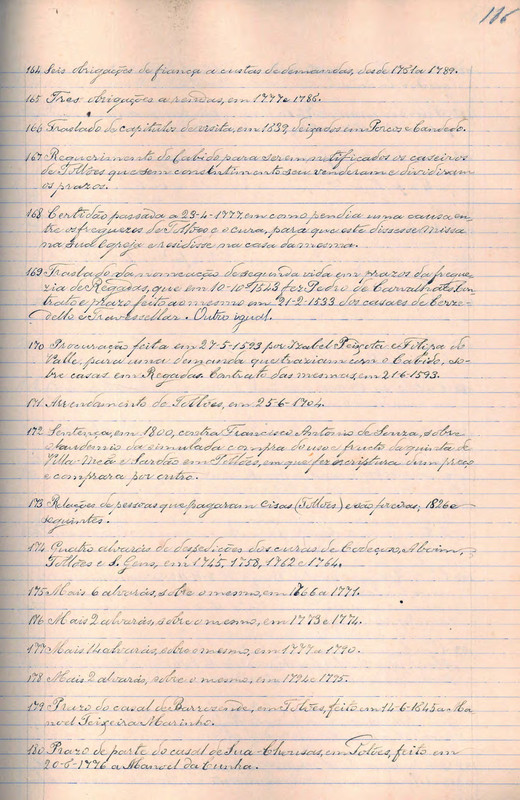 116
164 Seis obrigações de fiança a custas de demandas, desde 1751 a 1789.
165 Tres obrigações a rendas, em 1777 e 1786.
166 Traslado de capitulos de visita, em 1639, deixados em Porcos e Candedo.
167 Requerimento do Cabido para serem notificados os caseiros
de Tolões que sem consentimento seu venderam e dividiram
os prazos.
168 Certidão passada a 23-4-1777, em como pendia uma causa en-
tre os freguezes de Tolões e o cura, para que este dissesse missa
na sua Egreja e residisse na casa da mesma.
169 Traslado da nomeação de segunda vida em prazos da fregue-
zia de Regadas, que em 10-10-1543 fez Pedro de Carvalho. Con-
trato e prazo feito ao mesmo em 21-2-1533 dos casaes de
e Travessellas. Outro igual.
170 Procuração feita em 27-5-1593 por Izabel Peixota e Filipa do
Valle, para uma demanda que traziam com o Cabido, so-
bre casas em Regadas. Contrato das mesmas, em 21-6-1593.
171 Arrendamento de Tolões, em 25-6-1704.
172 Sentença, em 1800, contra Francisco Antonio de Souza, sobre
o laudemio da simulada compra do uso e fructo da quinta de
Villa-Meã e em Tolões, em que fez escriptura dum preço
e comprara por outro.
173 Relações de pessoas que pagaram cisas (Tolões) e são foreiras; 1826 e
seguintes.
174 Quatro alvarás de despedições dos curas de Codeçoso, Aboim,
Tolões e S. Gens, em 1745, 1758, 1762 e 1764.
175 Mais 6 alvarás, sobre o mesmo, em 1766 a 1771.
176 Mais 2 alvarás, sobre o mesmo, em 1773 e 1774.
177 Mais 14 alvarás, sobre o mesmo, em 1777 a 1790.
178 Mais 2 alvarás, sobre o mesmo, em 1794 e 1795.
179 Prazo do casal de em Tolões, feito em 14-6-1845 a Ma-
noel Teixeira Marinho.
180 Prazo de parte do casal de em Tolões, feito em
20-8-1776 a Manoel da Cunha.